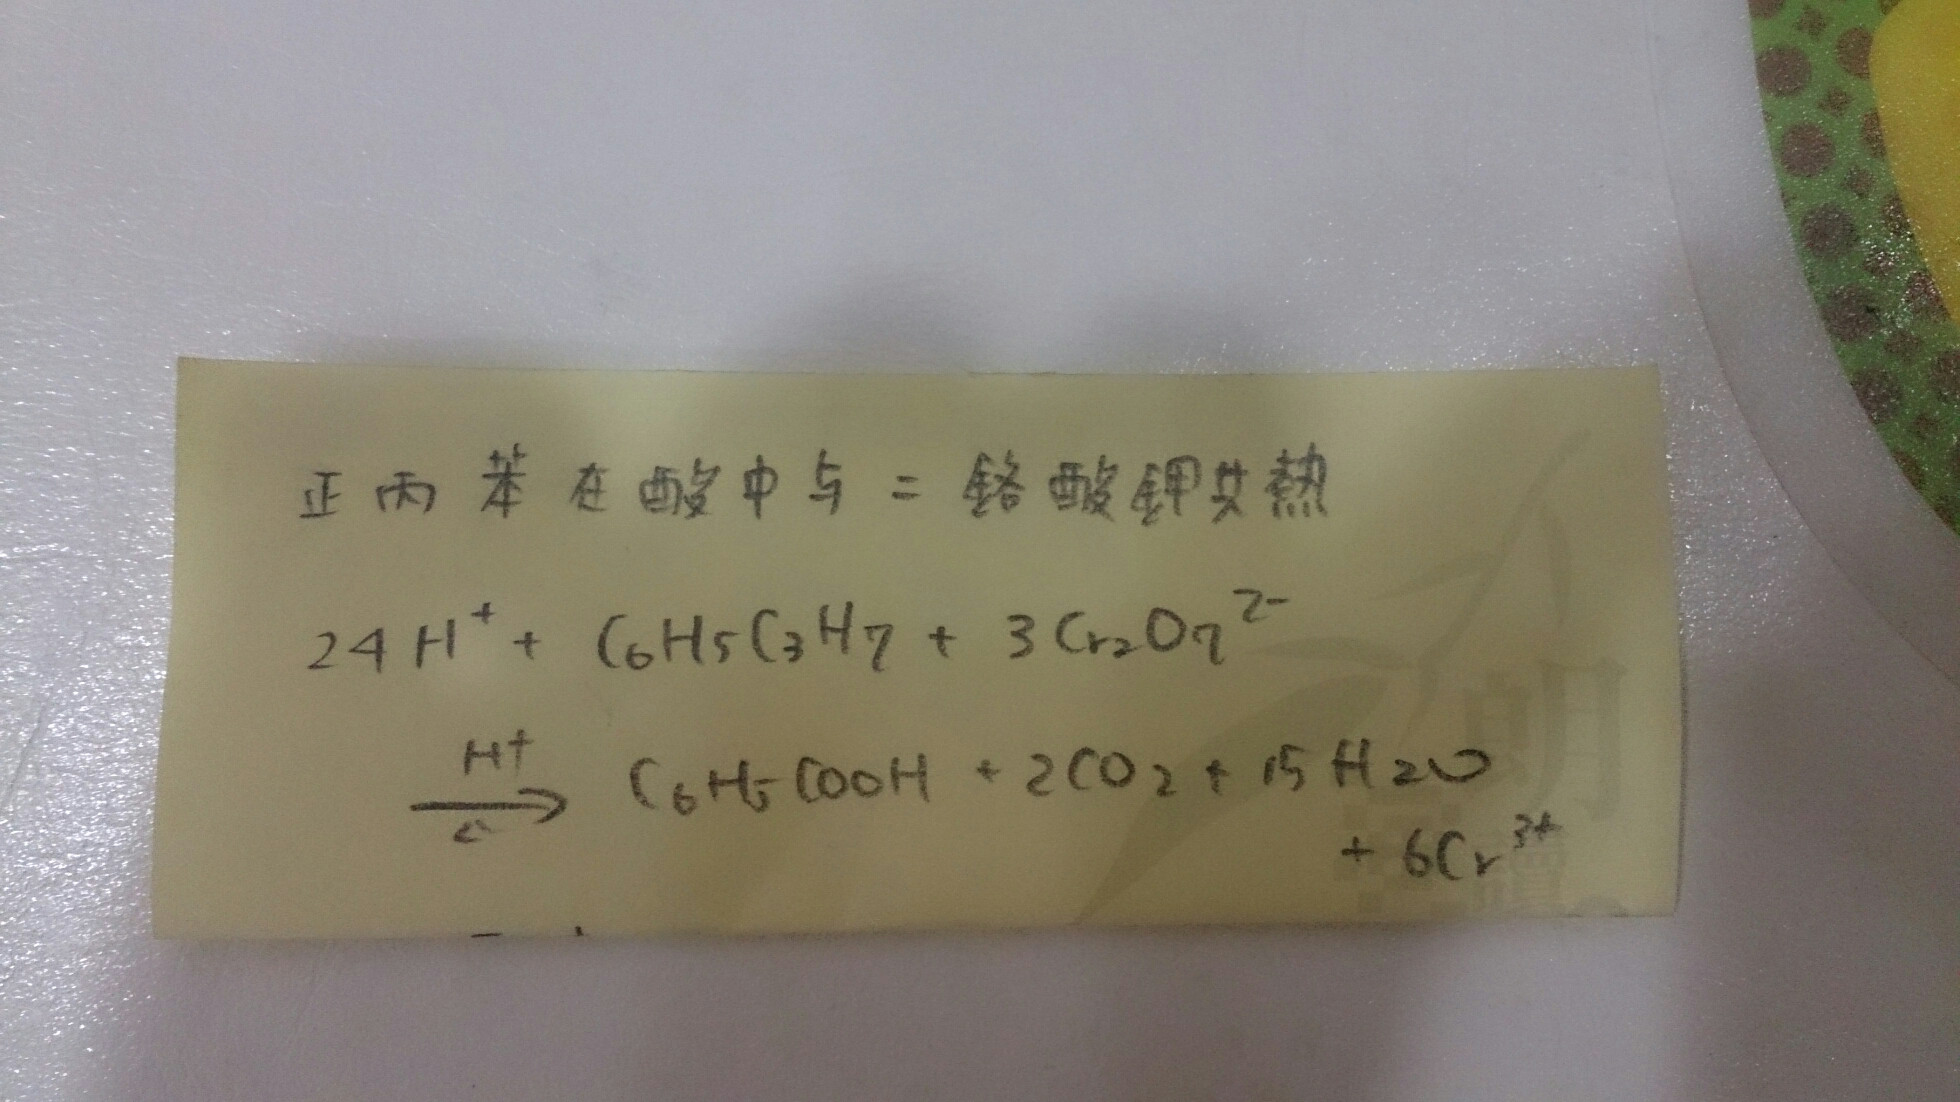 正丙苯在酸中与=鉻酸鉀共熱
24H⁺ + C₆H₅C₃H₇ + 3Cr₂O₇²⁻
H⁺
→
△
C₆H₅COOH + 2CO₂ + 15H₂O
+ 6Cr³⁺
朗